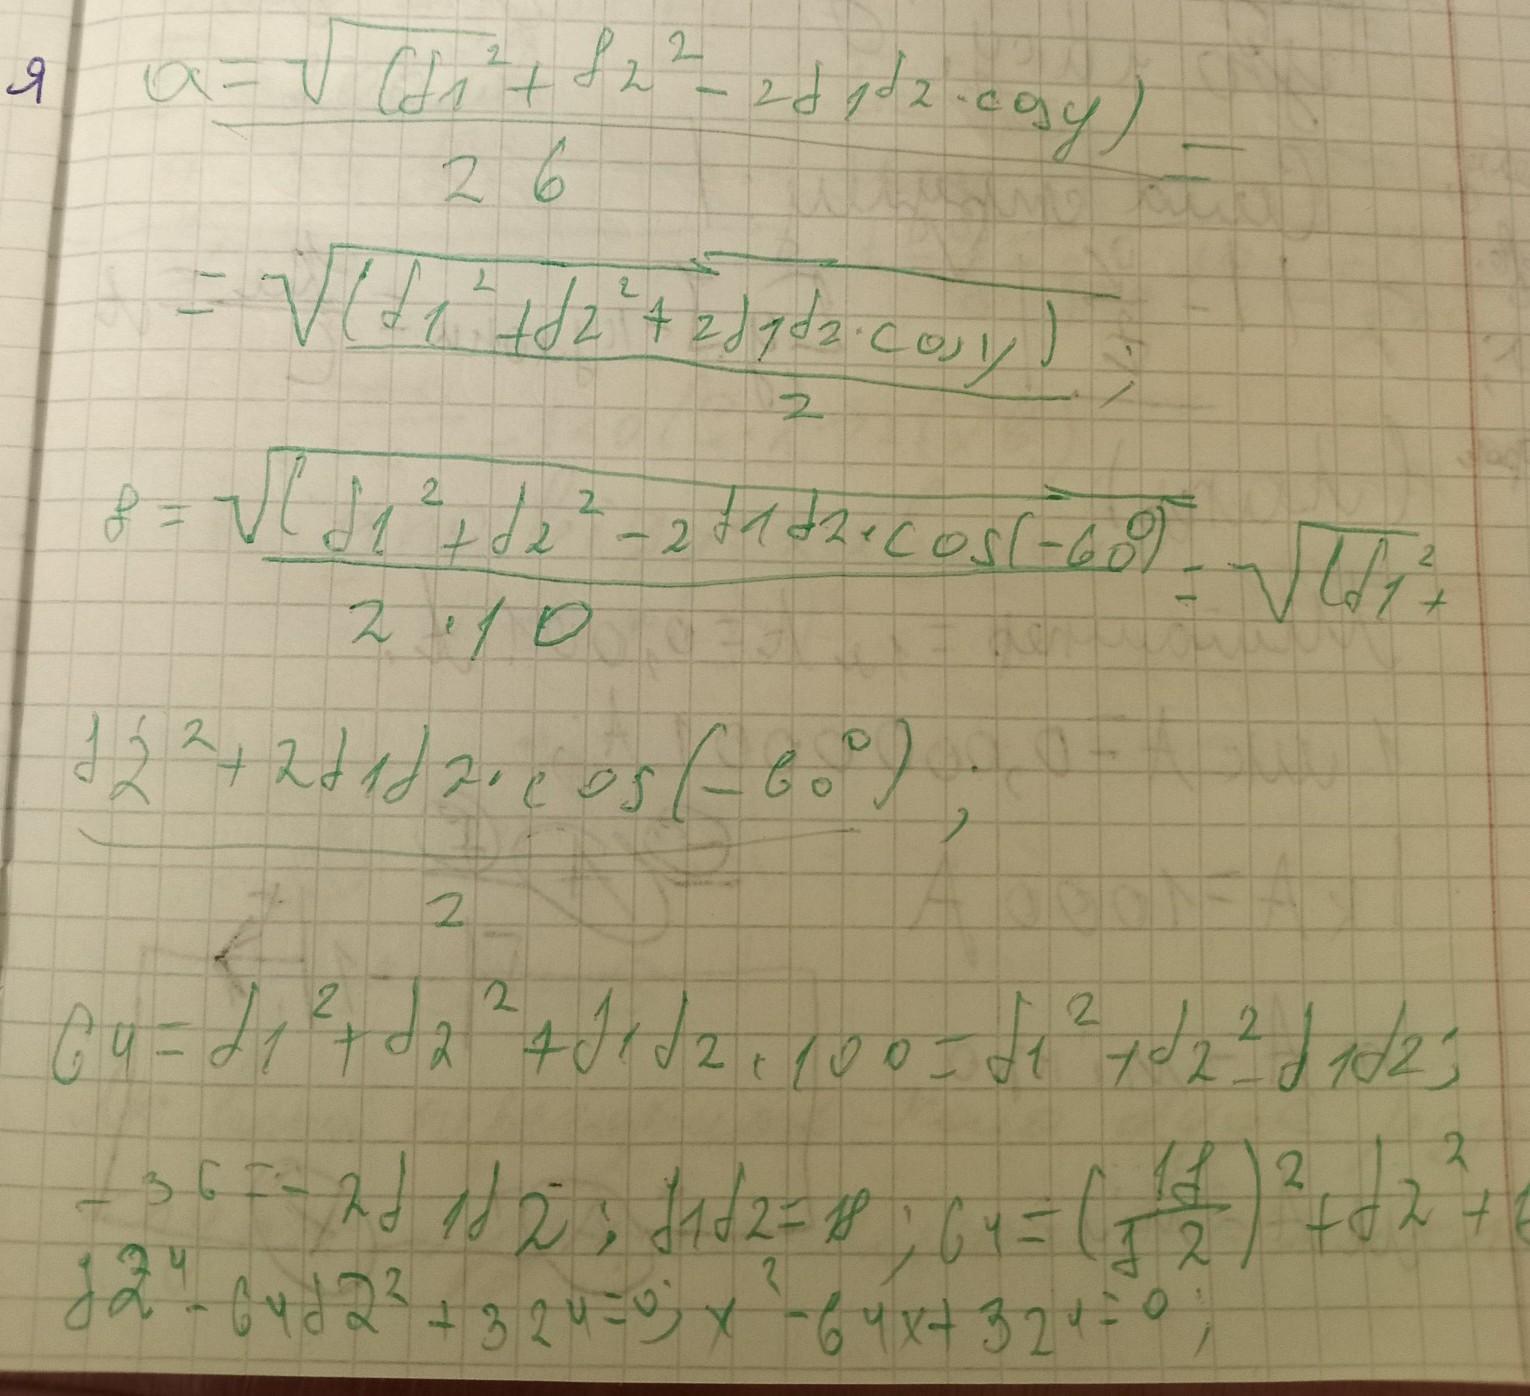 я a = √(d1² + d2² - 2d1d2 · cosy) =
2 6
= √(d1² + d2² + 2d1d2 · cosy) ;
2
8 = √(d1² + d2² - 2d1d2 · cos(-60°) = √(d1² +
2 · 10
d2² + 2d1d2 · cos(-60°) ;
2
64 = d1² + d2² + d1d2 · 100 = d1² + d2² - d1d2;
-36 = -2d1d2 ; d1d2 = 18 ; 64 = (18/d2)² + d2² +
d2⁴ - 64d2² + 324 = 0; x² - 64x + 324 = 0 ;